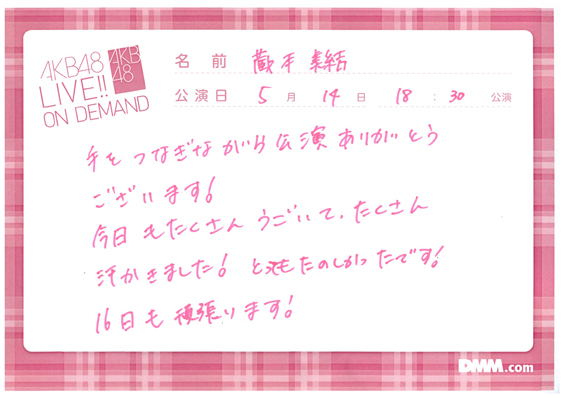 AKB48
LIVE!!
ON DEMAND
AKB
48
名前
公演日 5月 14日 18:30 公演
手をつなぎながら公演ありがとう
ございます!
今日もたくさんうごいて、たくさん
汗かきました! とてもたのしかったです!
16日も頑張ります!
DMM.com